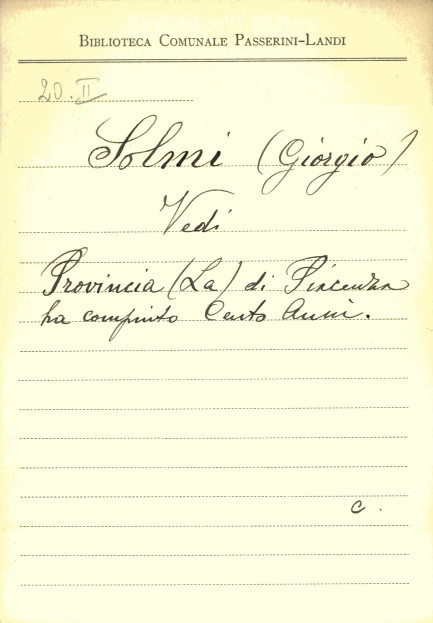 BIBLIOTECA COMUNALE PASSERINI-LANDI
20. II
Solmi (Giorgio)
Vedi
Provincia (La) di Piacenza
ha compiuto Cento Anni.
C.